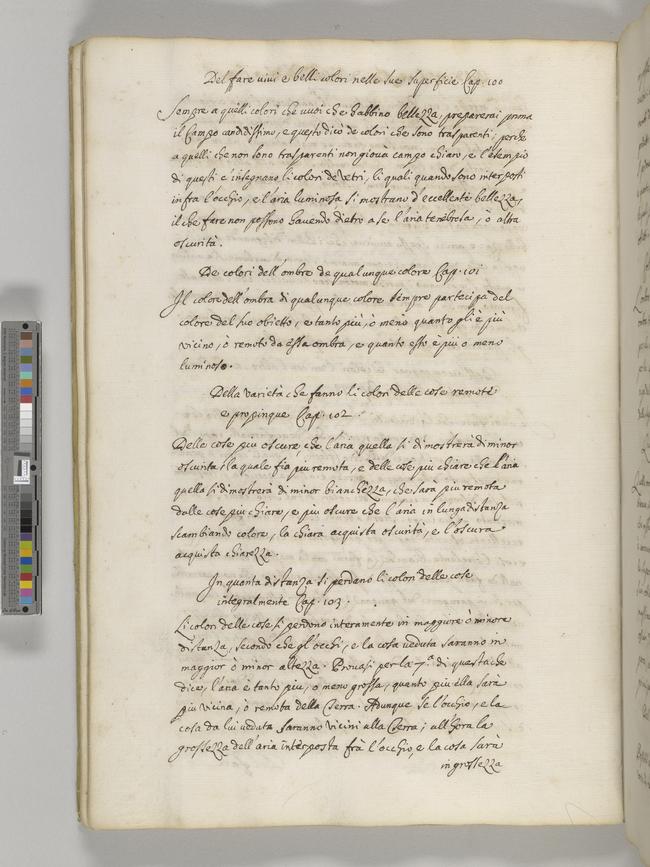 Del fare vivi e belli colori nelle sue superficie Cap. 100
Sempre a quelli colori che vuoi che habbino bellezza, preparerai prima
il Campo candidissimo, e questo dico de colori che sono trasparenti; perche
a quelli che non sono trasparenti non giova campo chiaro, e l'esempio
di questi c'insegnano li colori de Vetri, li quali quando sono interposti
infra l'occhio, e l'aria luminosa si mostrano d'eccellente bellezza,
il che fare non possono havendo dietro a se l'aria tenebrosa, ò altra
oscurità.
De colori dell'ombre de qualunque colore Cap. 101
Il colore dell'ombra di qualunque colore sempre partecipa del
colore del suo obietto, e tanto più, ò meno quanto gli è più
vicino, ò remoto da essa ombra, e quanto esso è più o meno
luminoso.
Della varietà che fanno li colori delle cose remote
e propinque Cap. 102.
Delle cose più oscure, che l'aria quella si dimostrerà di minor
oscurità la quale fia più remota, e delle cose più chiare che l'aria
quella si dimostrerà di minor bianchezza, che sarà più remota
dalle cose più chiare, e più oscure che l'aria in lunga distanza
scambiando colore, la chiara acquista oscurità, e l'oscura
acquista chiarezza.
In quanta distanza si perdano li colori delle cose
integralmente Cap. 103.
Li colori delle cose si perdono interamente in maggiore ò minore
distanza, secondo che gl'occhi, e la cosa veduta saranno in
maggior ò minor altezza. Provasi per la 7.ª di questa che
dice, l'aria è tanto più, o meno grossa, quanto più ella sarà
più vicina, ò remota della Terra. Adunque se l'occhio, e la
cosa da lui veduta saranno vicini alla Terra; all'hora la
grossezza dell'aria interposta frà l'occhio, e la cosa sarà
in grossezza